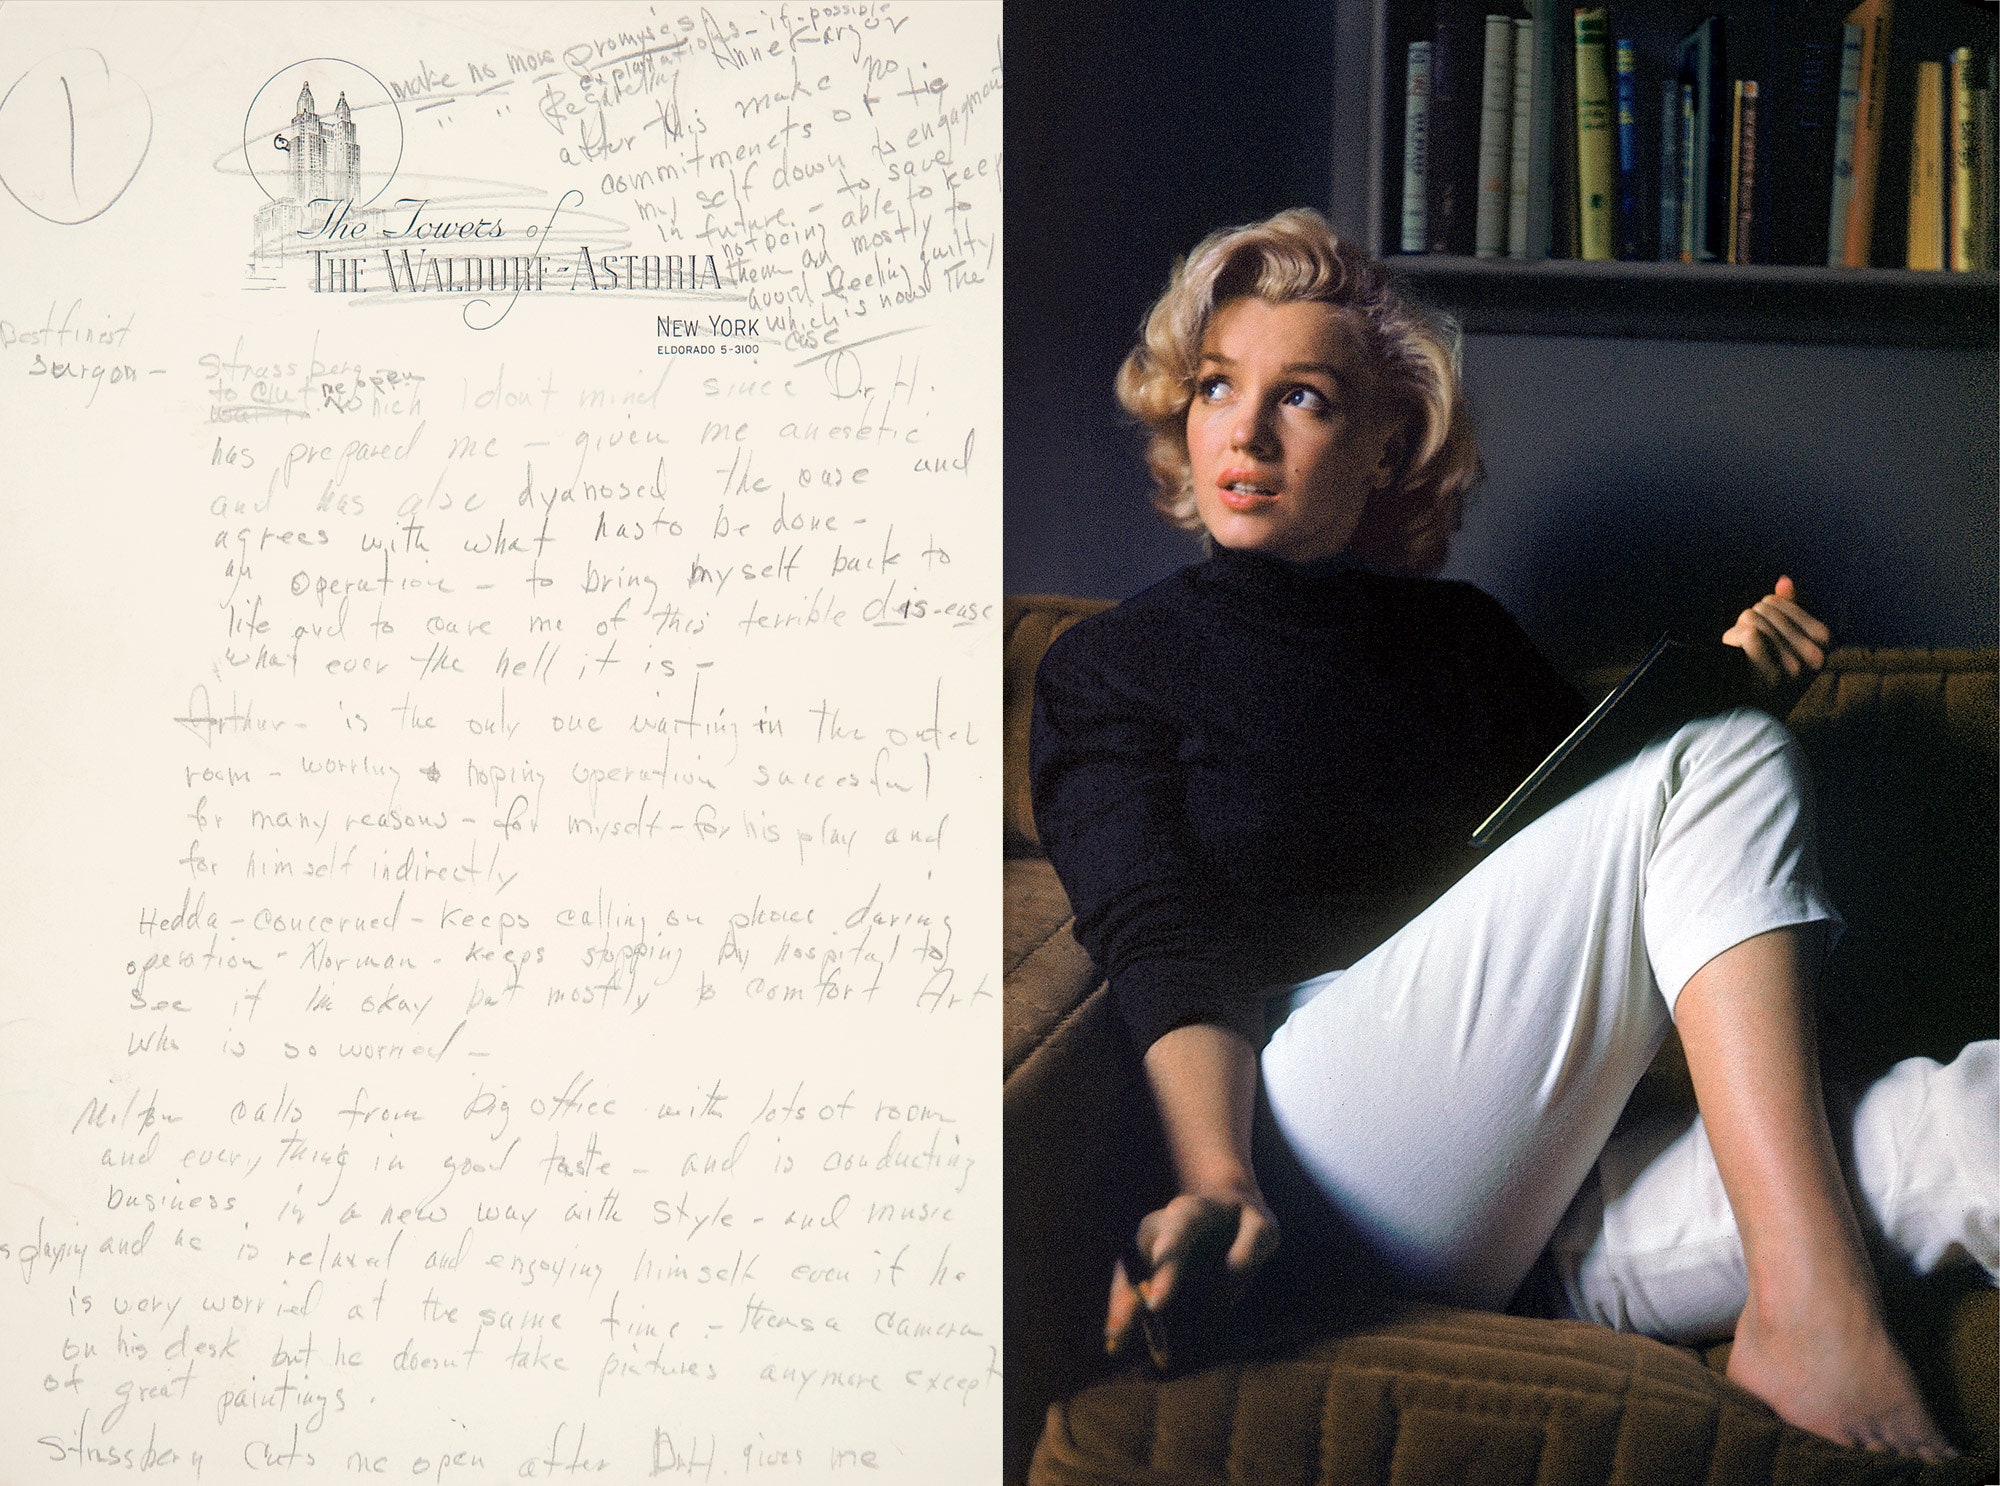 1
make no more promises
" " explanations - if possible
Regarding Anne Karger
after this make no
commitmenets or tie
my self down to engagments
in future - to save
not being able to keep
them and mostly to
avoid feeling guilty
which is now the
case
The Towers of
THE WALDORF-ASTORIA
NEW YORK
ELDORADO 5-3100
Best finest
surgon - Strassberg
to cut me open
which I dont mind since Dr. H.
has prepared me - given me anesetic
and has also dyanosed the case and
agrees with what has to be done -
an operation - to bring myself back to
life and to cure me of this terrible dis-ease
what ever the hell it is -
Arthur - is the only one waiting in the outer
room - worring & hoping operation succesful
for many reasons - for myself - for his play and
for himself indirectly
Hedda - concerned - keeps calling on phone during
operation - Norman - keeps stopping by hospital to
see if I'm okay but mostly to comfort Art
who is so worried -
Milton calls from big office with lots of room
and everything in good taste - and is conducting
business in a new way with style - and music
is playing and he is relaxed and enjoying himself even if he
is very worried at the same time - theres a camera
on his desk but he doesnt take pictures anymore except
of great paintings.
Strassberg cuts me open after Dr. H. gives me